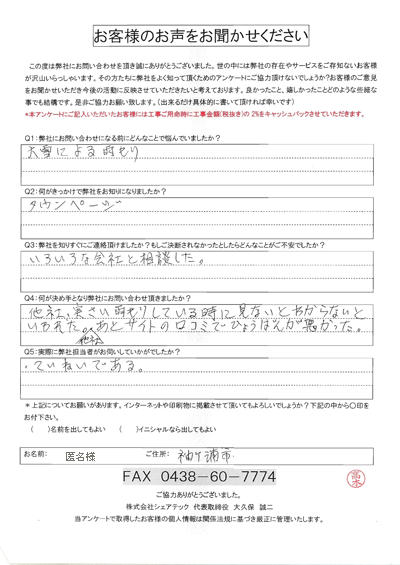 お客様のお声をお聞かせください
この度は弊社にお問い合わせを頂き誠にありがとうございました。世の中には弊社の存在やサービスをご存知ないお客様
が沢山いらっしゃいます。その方たちに弊社をよく知って頂くためのアンケートにご協力頂けないでしょうか?お客様のご意見
をお聞かせいただき今後の活動に反映させていただきたいと考えております。良かったこと、嬉しかったことどのような些細な
事でも結構です。是非ご協力お願い致します。(出来るだけ具体的に書いて頂ければ幸いです)
*本アンケートにご記入いただいたお客様には工事ご用命時に工事金額(税抜き)の2%をキャッシュバックさせていただきます。
Q1:弊社にお問い合わせになる前にどんなことで悩んでいましたか?
大雪による雨もり
Q2:何がきっかけで弊社をお知りになりましたか?
タウンページ
Q3:弊社を知りすぐにご連絡頂けましたか?もしご決断されなかったとしたらどんなことがご不安でしたか?
いろいろな会社と相談した。
Q4:何が決め手となり弊社にお問い合わせ頂きましたか?
他社、実さい雨もりしている時に見ないとわからないと
いわれた。あとサイトの口コミでひょうばんが悪かった。
他社
Q5:実際に弊社担当者がお伺いしていかがでしたか?
・ていねいである。
*上記についてお願いがあります。インターネットや印刷物に掲載させて頂いてもよろしいでしょうか?下記の中から〇印を
お付下さい。
( )名前を出してもよい ( )イニシャルなら出してもよい
お名前: 匿名様 ご住所: 袖ケ浦市
FAX 0438-60-7774
ご協力ありがとうございました。
株式会社シェアテック 代表取締役 大久保 誠二
当アンケートで取得したお客様の個人情報は関係法規に基づき厳正に管理いたします。